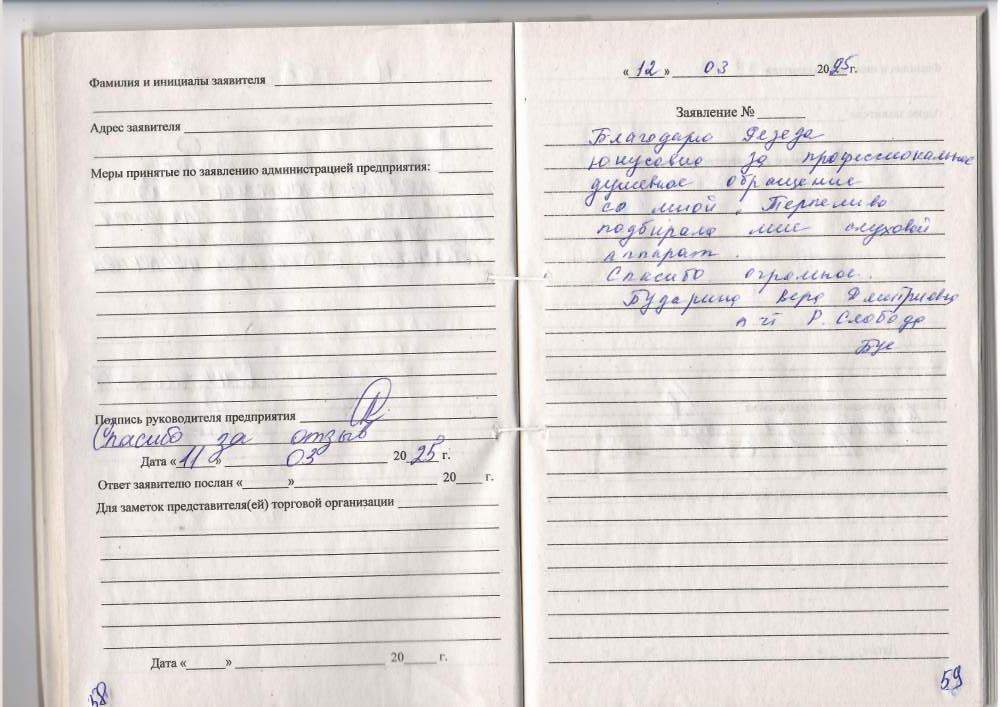 Фамилия и инициалы заявителя
Адрес заявителя
Меры принятые по заявлению администрацией предприятия:
Подпись руководителя предприятия
Спасибо за отзыв
Дата «11» 03 2025 г.
Ответ заявителю послан «______»______ 20____ г.
Для заметок представителя(ей) торговой организации
Дата «______» ______ 20_____ г.
58
«12» 03 2025г.
Заявление № ______
Благодарю
Юнусовну за профессиональное
душевное обращение
со мной. Терпеливо
подбирала мне слуховой
аппарат.
Спасибо огромное.
Бударина Вера Дмитриевна
Р. Слобода
59